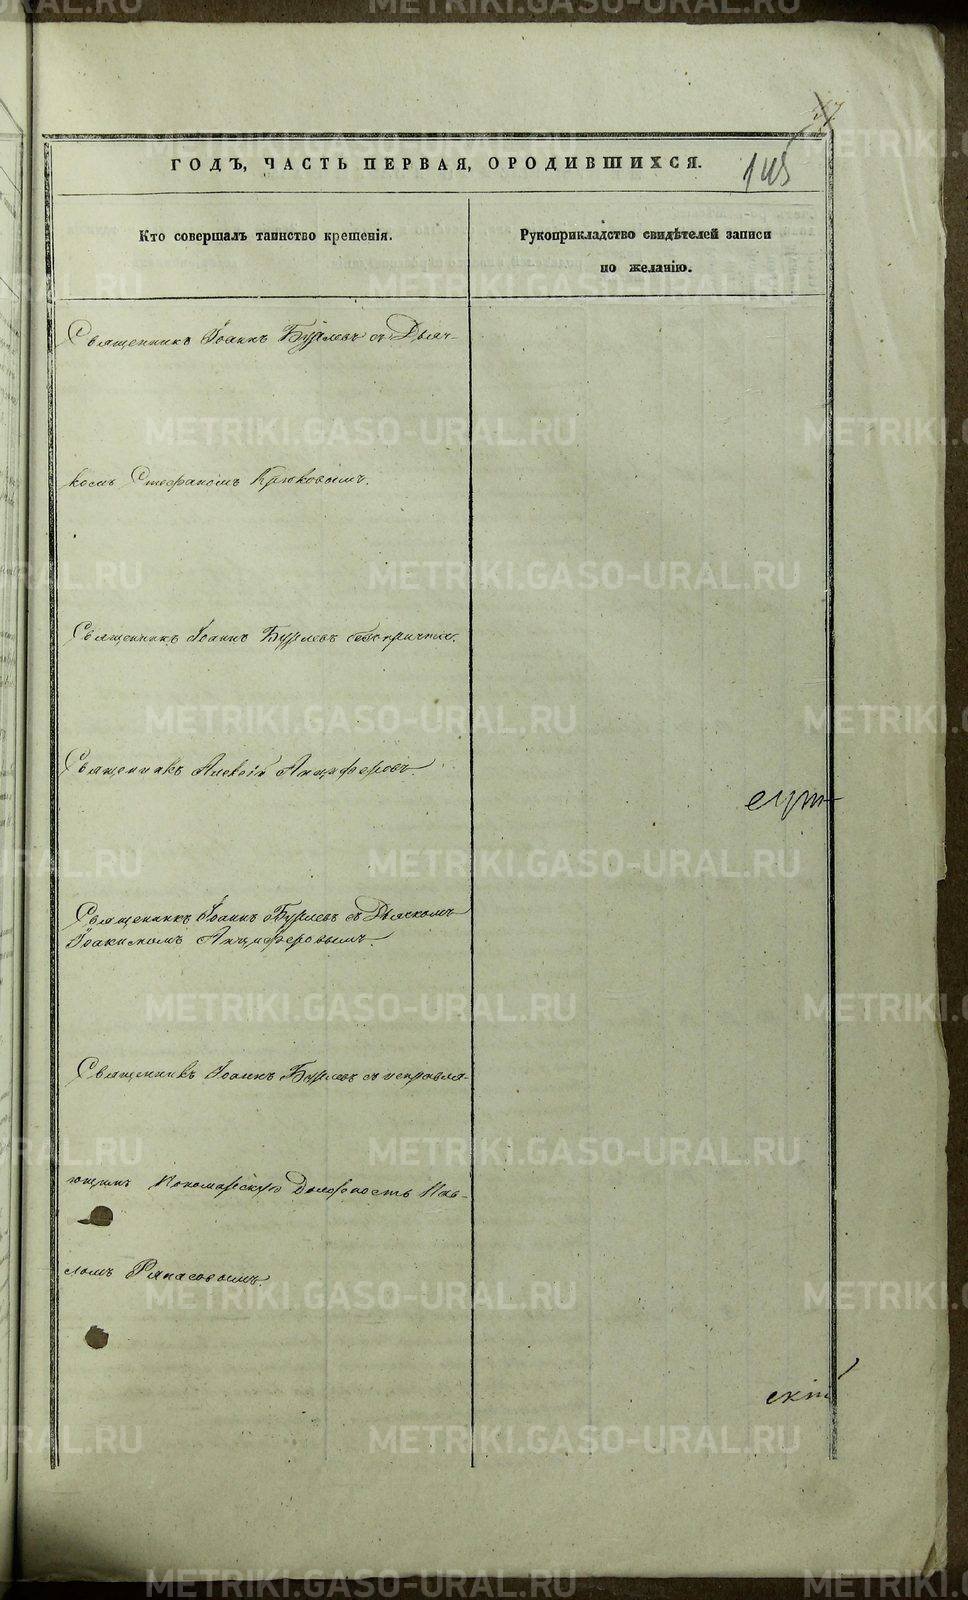 ГОДЪ, ЧАСТЬ ПЕРВАЯ, ОРОДИВШИХСЯ.
145
Кто совершалъ таинство крещенія.
Рукоприкладство свидѣтелей записи
по желанію.
Священникъ Іоаннъ Бурлевъ съ Дьяч-
комъ Стефаномъ Крюковымъ.
Священникъ Іоаннъ Бурлевъ безъ причта.
Священникъ Алексій Анциферовъ.
Священникъ Іоаннъ Бурлевъ съ Дьячкомъ
Іоакимомъ Анциферовымъ.
Священникъ Іоаннъ Бурлевъ съ исправля-
ющимъ Пономарскую Должность Пав-
ломъ
METRIKI.GASO-URAL.RU